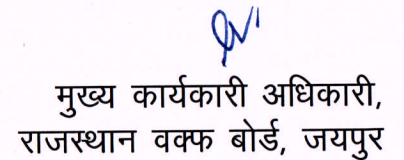 मुख्य कार्यकारी अधिकारी,
राजस्थान वक्फ बोर्ड, जयपुर